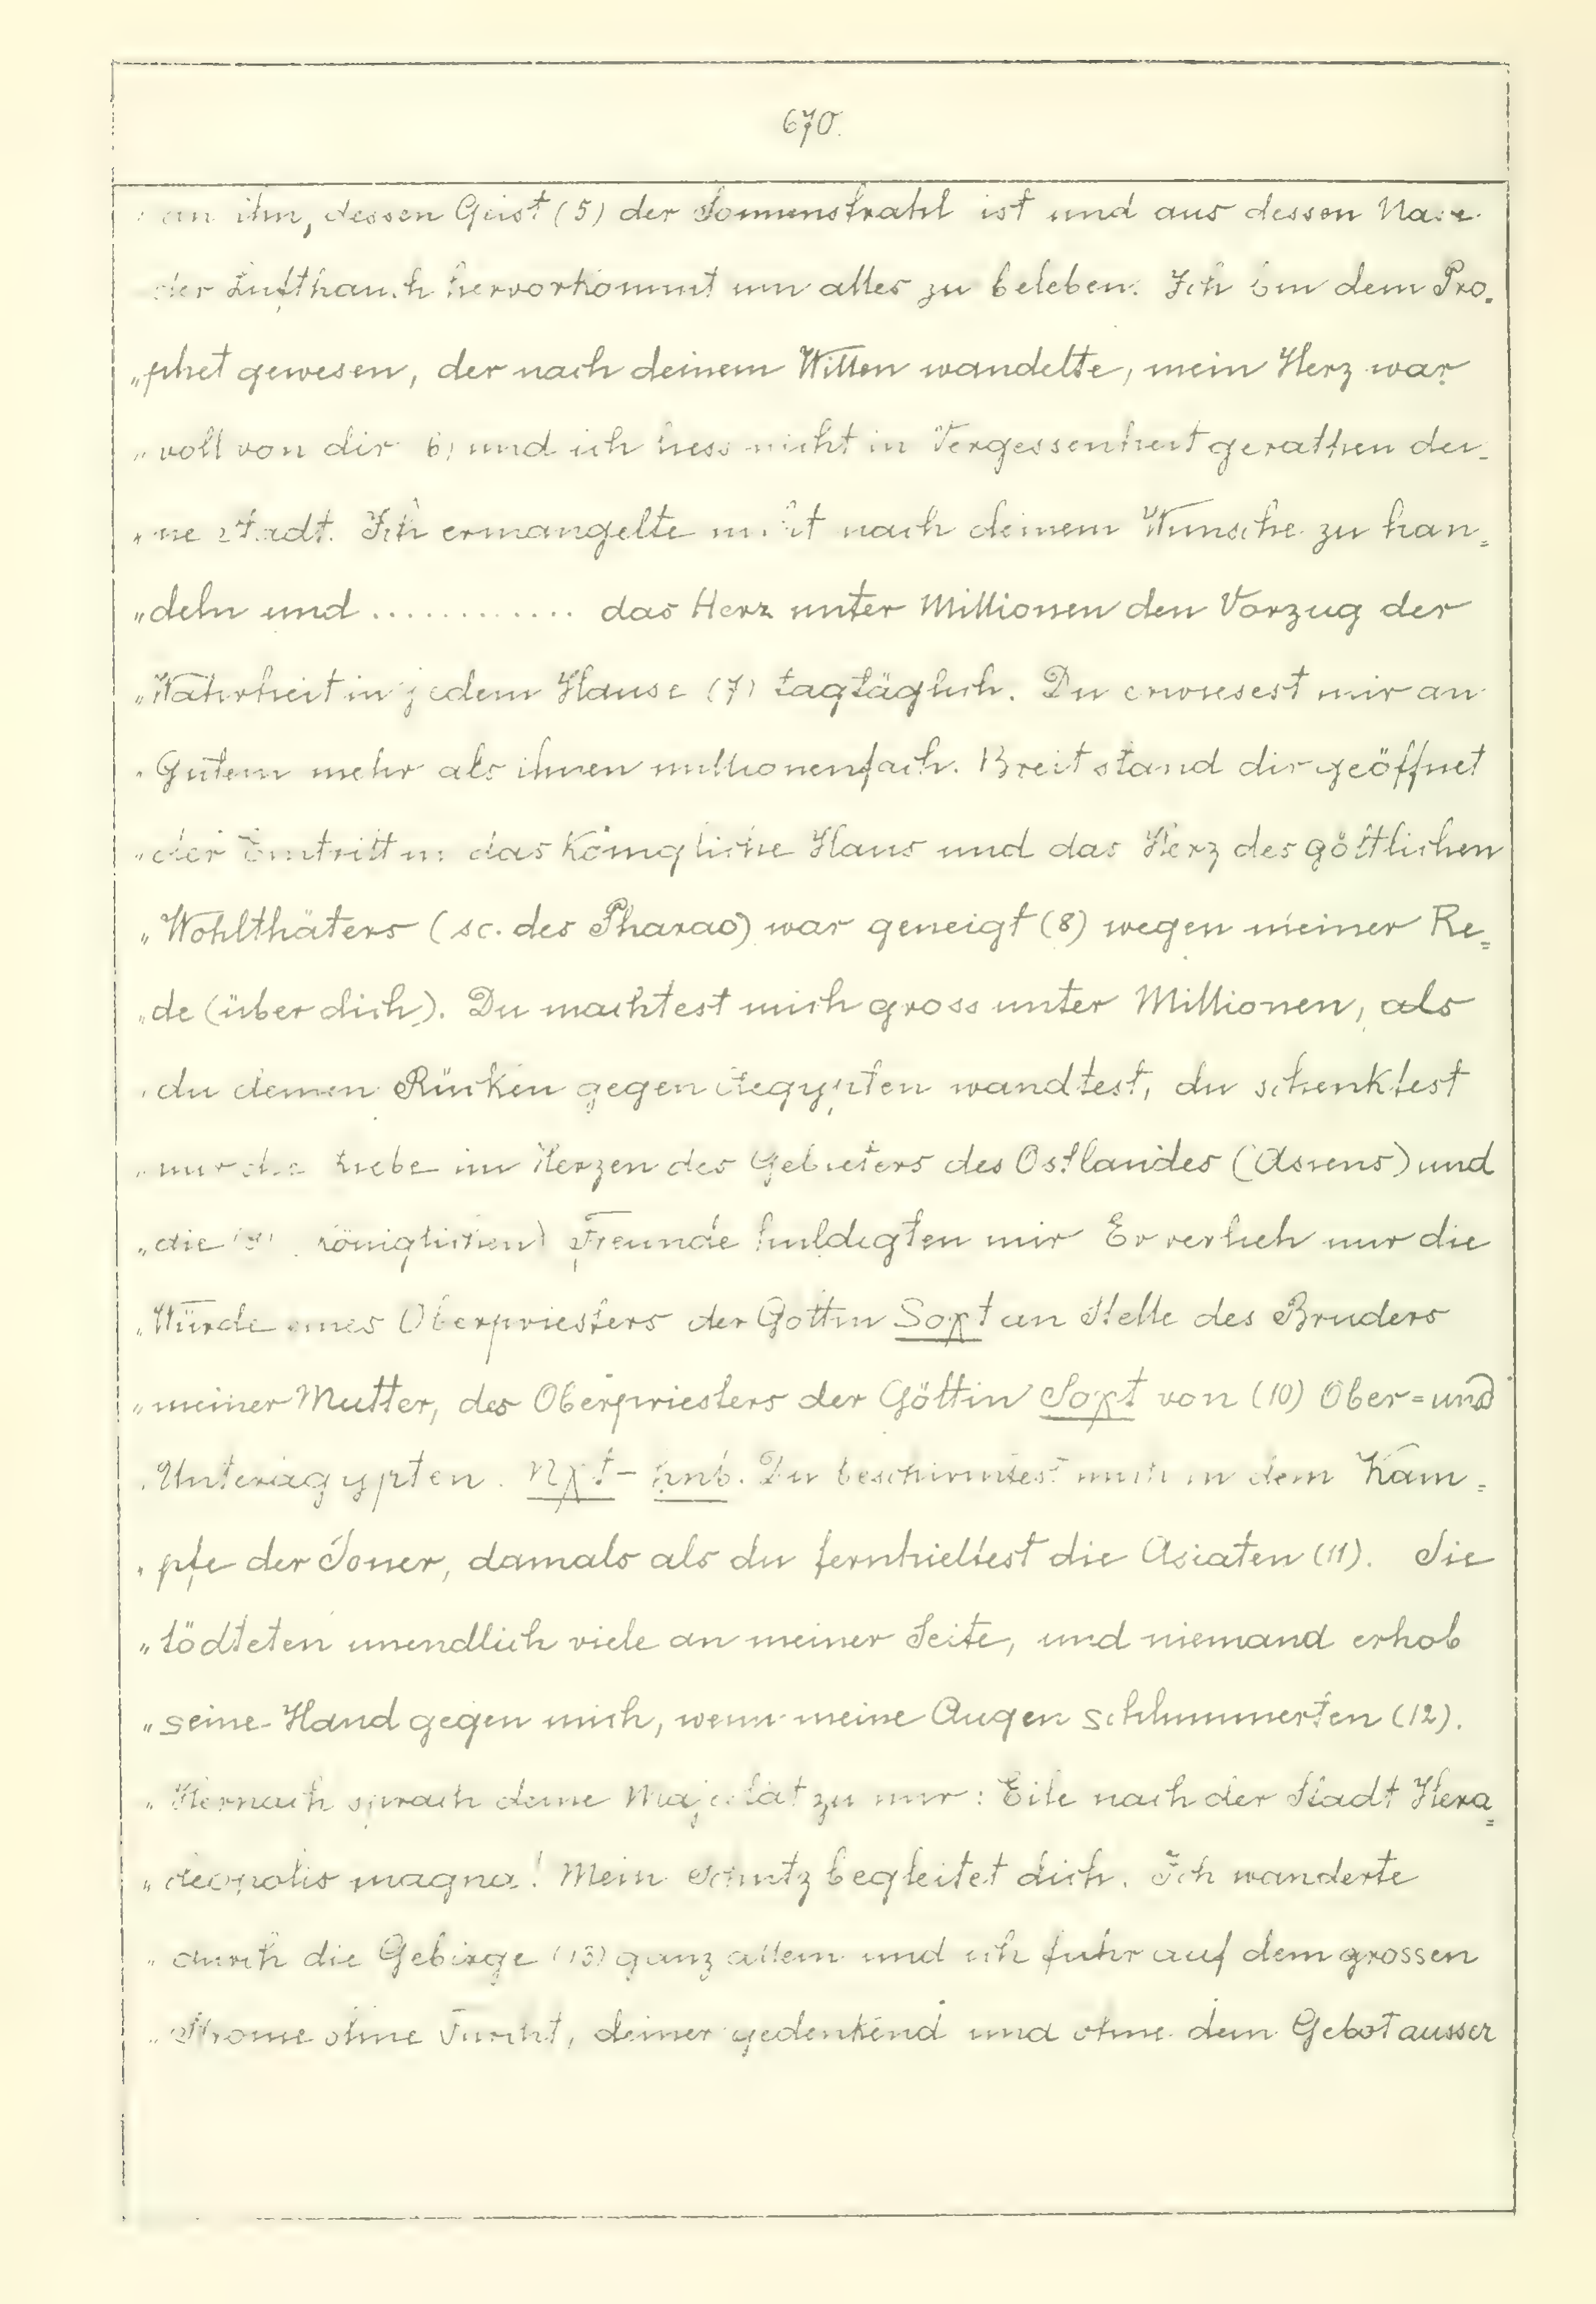 670.
an ihm, dessen Geist (5) der Sonnenstrahl ist und aus dessen Nase
der Lufthauch hervorkommt um alles zu beleben. Ich bin dein Pro-
„phet gewesen, der nach deinem Willen wandelte, mein Herz war
„voll von dir (6) und ich liess nicht in Vergessenheit gerathen dei-
„ne Stadt. Ich ermangelte nicht nach deinem Wunsche zu han=
„deln und ............ das Herz unter Millionen den Vorzug der
„Wahrheit in jedem Hause (7) tagtäglich. Du erwiesest mir an
„Gutem mehr als ihnen millionenfach. Breit stand dir geöffnet
„der Eintritt in das königliche Haus und das Herz des göttlichen
„Wohlthäters (sc. des Pharao) war geneigt (8) wegen meiner Re=
„de (über dich). Du machtest mich gross unter Millionen, als
„du deinen Rücken gegen Aegypten wandtest, du schenktest
„mir die Liebe im Herzen des Gebieters des Ostlandes (Asiens) und
„die (9) königlichen) Freunde huldigten mir Er verlieh mir die
„Würde eines Oberpriesters der Göttin Soχt an Stelle des Bruders
„meiner Mutter, des Oberpriesters der Göttin Soχt von (10) Ober= und
„Unterägypten. Nχt-hnb. Du beschirmtest mich in dem Kam=
„pfe der Joner, damals als du fernhieltest die Asiaten (11). Sie
„tödteten unendlich viele an meiner Seite, und niemand erhob
„seine Hand gegen mich, wenn meine Augen schlummerten (12).
„Hernach sprach deine Majestät zu mir: Eile nach der Stadt Hera=
„cleopolis magna! Mein Schutz begleitet dich. Ich wanderte
„durch die Gebirge (13) ganz allein und ich fuhr auf dem grossen
„Strome ohne Furcht, deiner gedenkend und ohne dein Gebot ausser